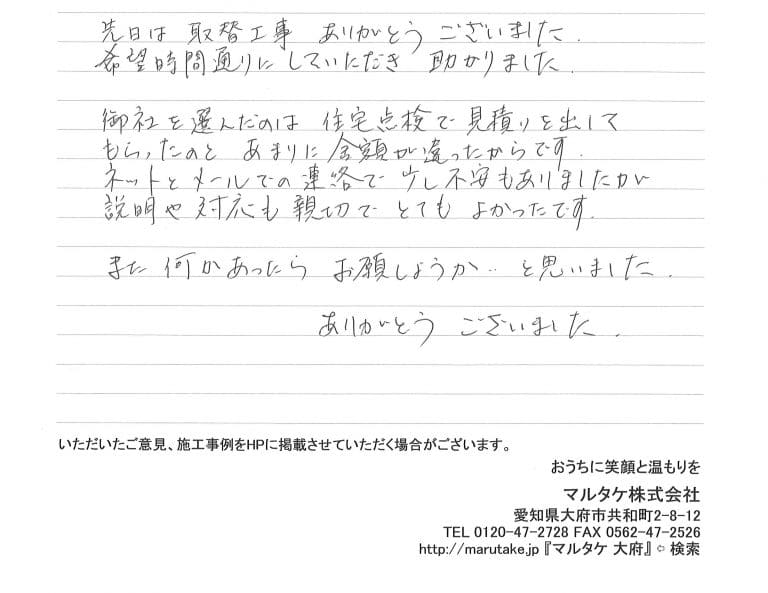 先日は 取替工事 ありがとう ございました.
希望時間通りに していただき 助かりました.
御社を選んだのは 住宅点検で 見積りを出して
もらったのと あまりに 金額が違ったからです.
ネットとメールでの連絡で 少し不安もありましたが
説明や対応も親切で とても よかったです.
また 何かあったら お願しようか‥ と思いました.
ありがとう ございました.
いただいたご意見、施工事例をHPに掲載させていただく場合がございます。
おうちに笑顔と温もりを
マルタケ株式会社
愛知県大府市共和町2-8-12
TEL 0120-47-2728 FAX 0562-47-2526
http://marutake.jp『マルタケ 大府』⇦ 検索